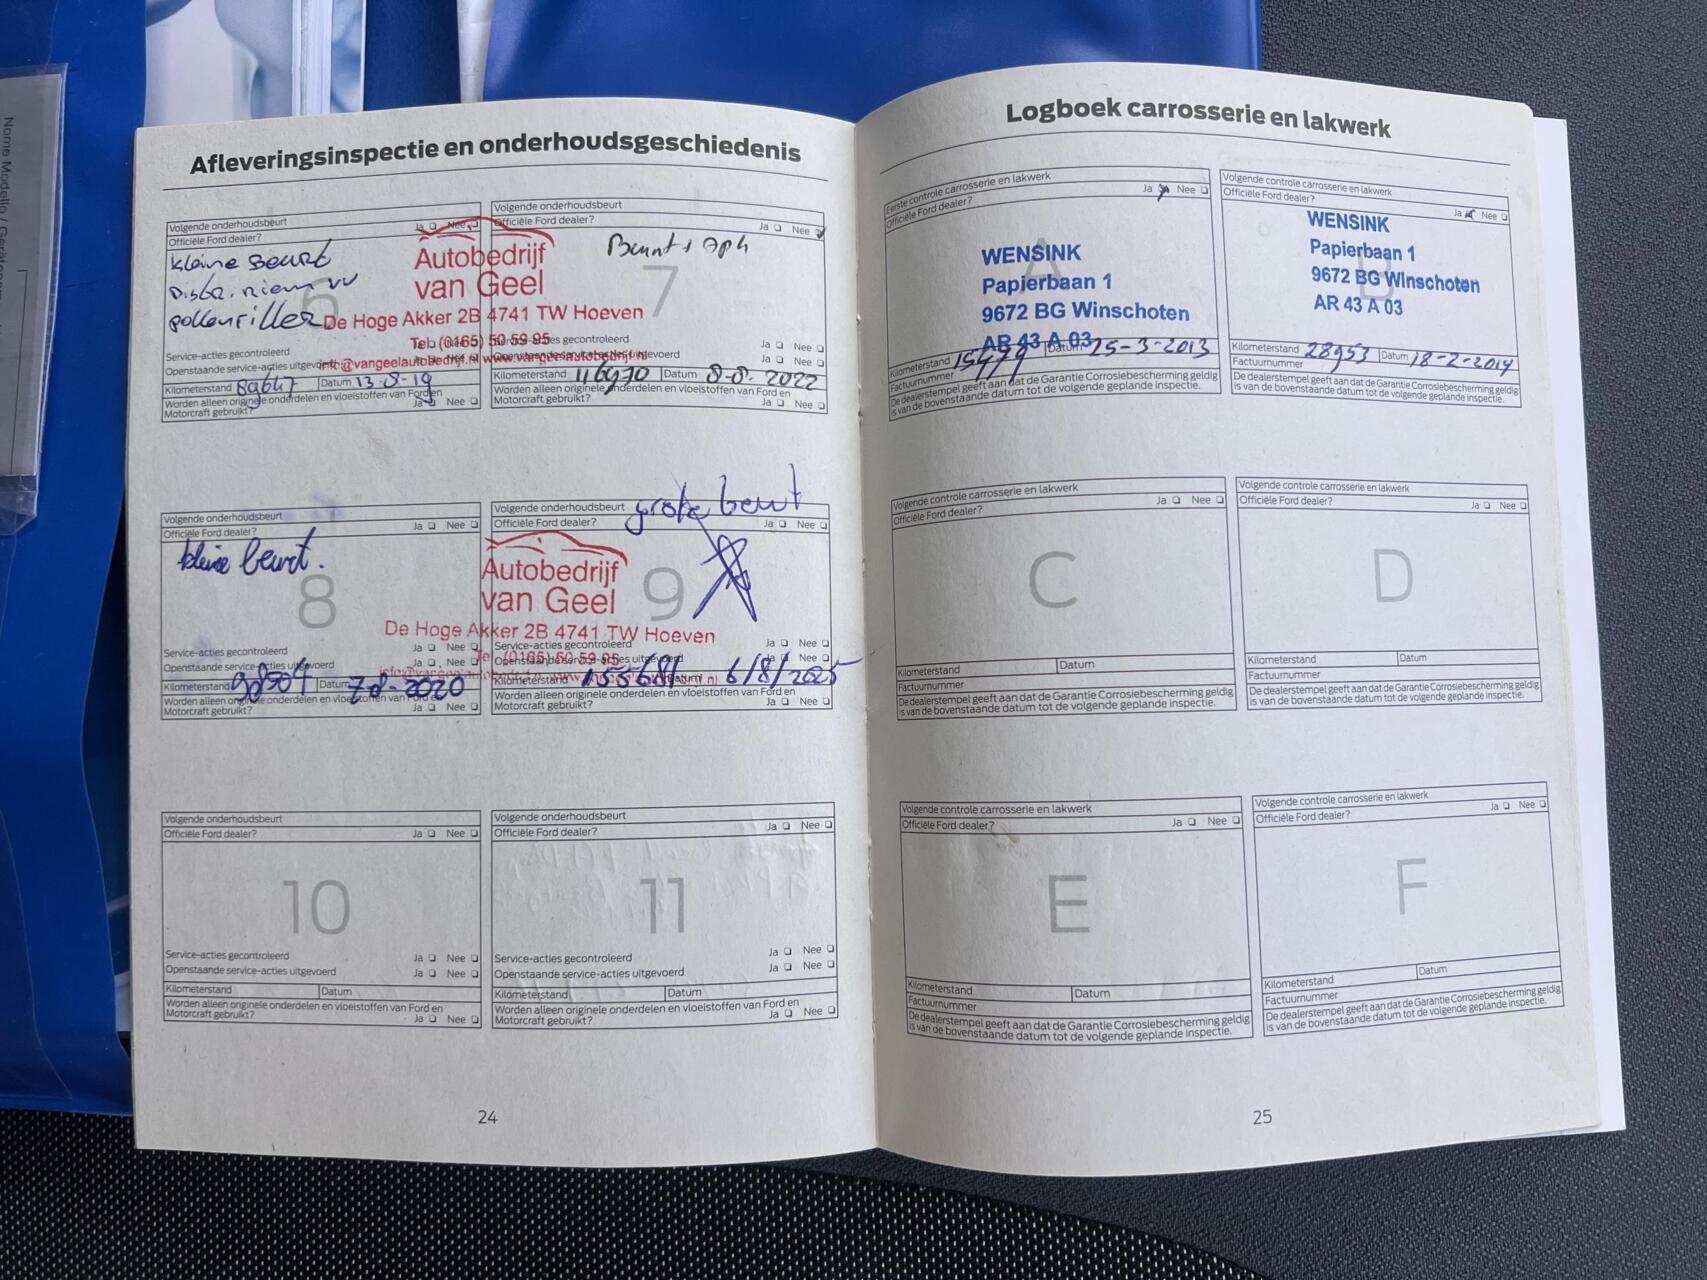 Nome Modello / Gerätenam
Afleveringsinspectie en onderhoudsgeschiedenis
Volgende onderhoudsbeurt
Officiële Ford dealer? Ja Nee
kleine Beurt
pollenfilter
6
Service-acties gecontroleerd
Openstaande service-acties uitgevoerd
Kilometerstand 89647 Datum 13-8-19
Worden alleen originele onderdelen en vloeistoffen van Ford en
Motorcraft gebruikt? Ja Nee
Autobedrijf
van Geel
De Hoge Akker 2B 4741 TW Hoeven
Tel. (0165) 50 59 95
info@vangeelautobedrijf.nl www.vangeelautobedrijf.nl
Volgende onderhoudsbeurt
Officiële Ford dealer? Ja Nee
Beurt + Apk
7
Service-acties gecontroleerd Ja Nee
Openstaande service-acties uitgevoerd Ja Nee
Kilometerstand 116970 Datum 8-8-2022
Worden alleen originele onderdelen en vloeistoffen van Ford en
Motorcraft gebruikt? Ja Nee
Volgende onderhoudsbeurt
Officiële Ford dealer? Ja Nee
kleine beurt.
8
Service-acties gecontroleerd Ja Nee
Openstaande service-acties uitgevoerd Ja Nee
Kilometerstand 98504 Datum 7-8-2020
Worden alleen originele onderdelen en vloeistoffen van Ford en
Motorcraft gebruikt? Ja Nee
Volgende onderhoudsbeurt
grote beurt
Officiële Ford dealer? Ja Nee
Autobedrijf
van Geel
9
De Hoge Akker 2B 4741 TW Hoeven
Tel. (0165) 50 59 95
Service-acties gecontroleerd Ja Nee
Openstaande service-acties uitgevoerd Ja Nee
Kilometerstand 155681 Datum 6/8/2025
Worden alleen originele onderdelen en vloeistoffen van Ford en
Motorcraft gebruikt? Ja Nee
Volgende onderhoudsbeurt
Officiële Ford dealer? Ja Nee
10
Service-acties gecontroleerd Ja Nee
Openstaande service-acties uitgevoerd Ja Nee
Kilometerstand Datum
Worden alleen originele onderdelen en vloeistoffen van Ford en
Motorcraft gebruikt? Ja Nee
Volgende onderhoudsbeurt
Officiële Ford dealer? Ja Nee
11
Service-acties gecontroleerd Ja Nee
Openstaande service-acties uitgevoerd Ja Nee
Kilometerstand Datum
Worden alleen originele onderdelen en vloeistoffen van Ford en
Motorcraft gebruikt? Ja Nee
24
Logboek carrosserie en lakwerk
Eerste controle carrosserie en lakwerk
Officiële Ford dealer? Ja Nee
A
WENSINK
Papierbaan 1
9672 BG Winschoten
AR 43 A 03
Kilometerstand 15479 Datum 25-3-2013
Factuurnummer
De dealerstempel geeft aan dat de Garantie Corrosiebescherming geldig
is van de bovenstaande datum tot de volgende geplande inspectie.
Volgende controle carrosserie en lakwerk
Officiële Ford dealer? Ja Nee
B
WENSINK
Papierbaan 1
9672 BG Winschoten
AR 43 A 03
Kilometerstand 28953 Datum 18-2-2014
Factuurnummer
De dealerstempel geeft aan dat de Garantie Corrosiebescherming geldig
is van de bovenstaande datum tot de volgende geplande inspectie.
Volgende controle carrosserie en lakwerk
Officiële Ford dealer? Ja Nee
C
Kilometerstand Datum
Factuurnummer
De dealerstempel geeft aan dat de Garantie Corrosiebescherming geldig
is van de bovenstaande datum tot de volgende geplande inspectie.
Volgende controle carrosserie en lakwerk
Officiële Ford dealer? Ja Nee
D
Kilometerstand Datum
Factuurnummer
De dealerstempel geeft aan dat de Garantie Corrosiebescherming geldig
is van de bovenstaande datum tot de volgende geplande inspectie.
Volgende controle carrosserie en lakwerk
Officiële Ford dealer? Ja Nee
E
Kilometerstand Datum
Factuurnummer
De dealerstempel geeft aan dat de Garantie Corrosiebescherming geldig
is van de bovenstaande datum tot de volgende geplande inspectie.
Volgende controle carrosserie en lakwerk
Officiële Ford dealer? Ja Nee
F
Kilometerstand Datum
Factuurnummer
De dealerstempel geeft aan dat de Garantie Corrosiebescherming geldig
is van de bovenstaande datum tot de volgende geplande inspectie.
25